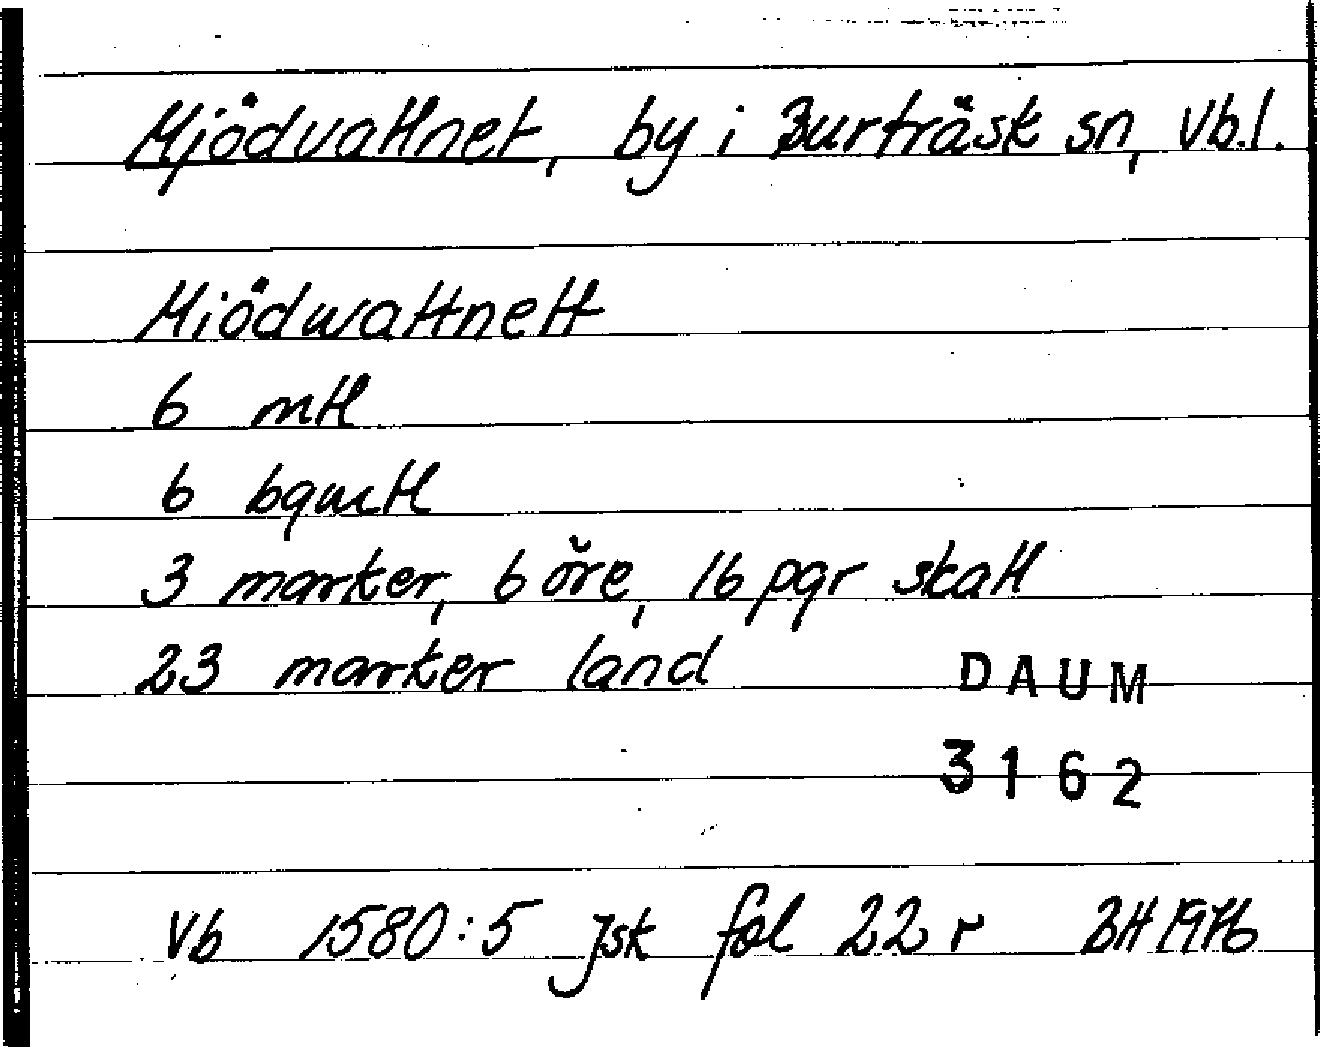 Mjödvattnet, by i Burträsk sn, Vb.l.
Miödwattnett
6 mtl
6 bgmtl
3 marker, 6 öre, 16 pgr skatt
23 marker land
DAUM
3162
Vb 1580:5 Jsk fol 22 r BH 1976